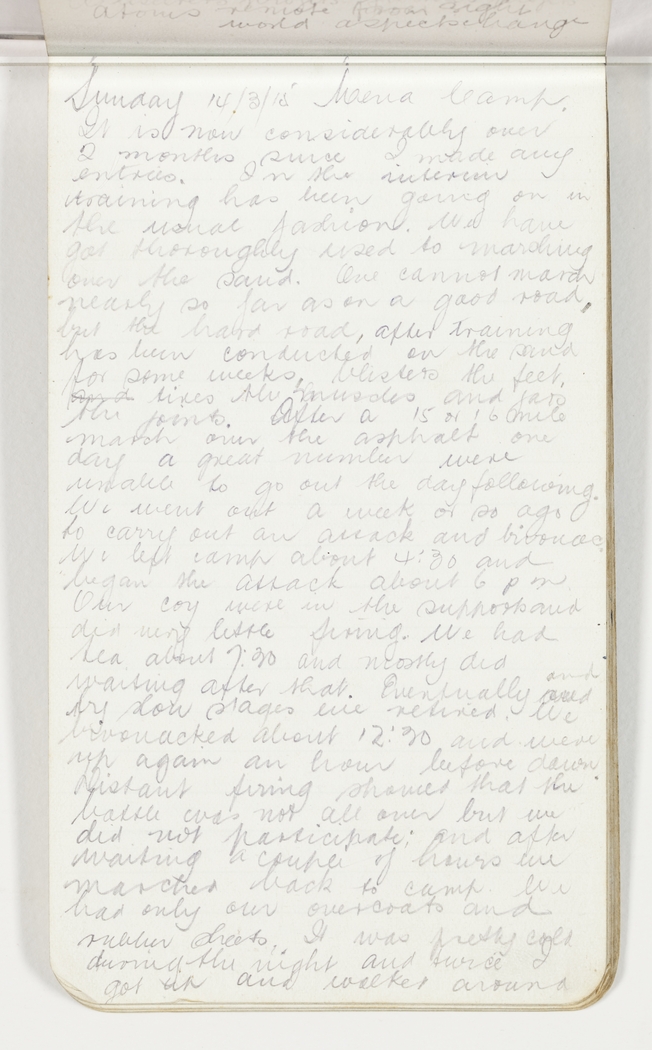 atoms remote from sight
world aspects change
Sunday 14/3/15 Mena Camp.
It is now considerably over
2 months since I made any
entries. In the interim
training has been going on in
the usual fashion. We have
got thoroughly used to marching
over the sand. One cannot march
nearly so far as on a good road,
but the hard road, after training
has been conducted on the sand
for some weeks, blisters the feet,
and tires the muscles and jars
the joints. After a 15 or 16 mile
march over the asphalt one
day a great number were
unable to go out the day following.
We went out a week or so ago
to carry out an attack and bivouac
We left camp about 4:30 and
began the attack about 6 p m.
Our coy were in the supports and
did very little firing. We had
tea about 7:30 and mostly did
waiting after that. Eventually and
by slow stages we retired. We
bivouacked about 12:30 and were
up again an hour before dawn
Distant firing showed that the
battle was not all over but we
did not participate; and after
waiting a couple of hours we
marched back to camp. We
had only our overcoats and
rubber sheets. It was pretty cold
during the night and twice I
got up and walked around